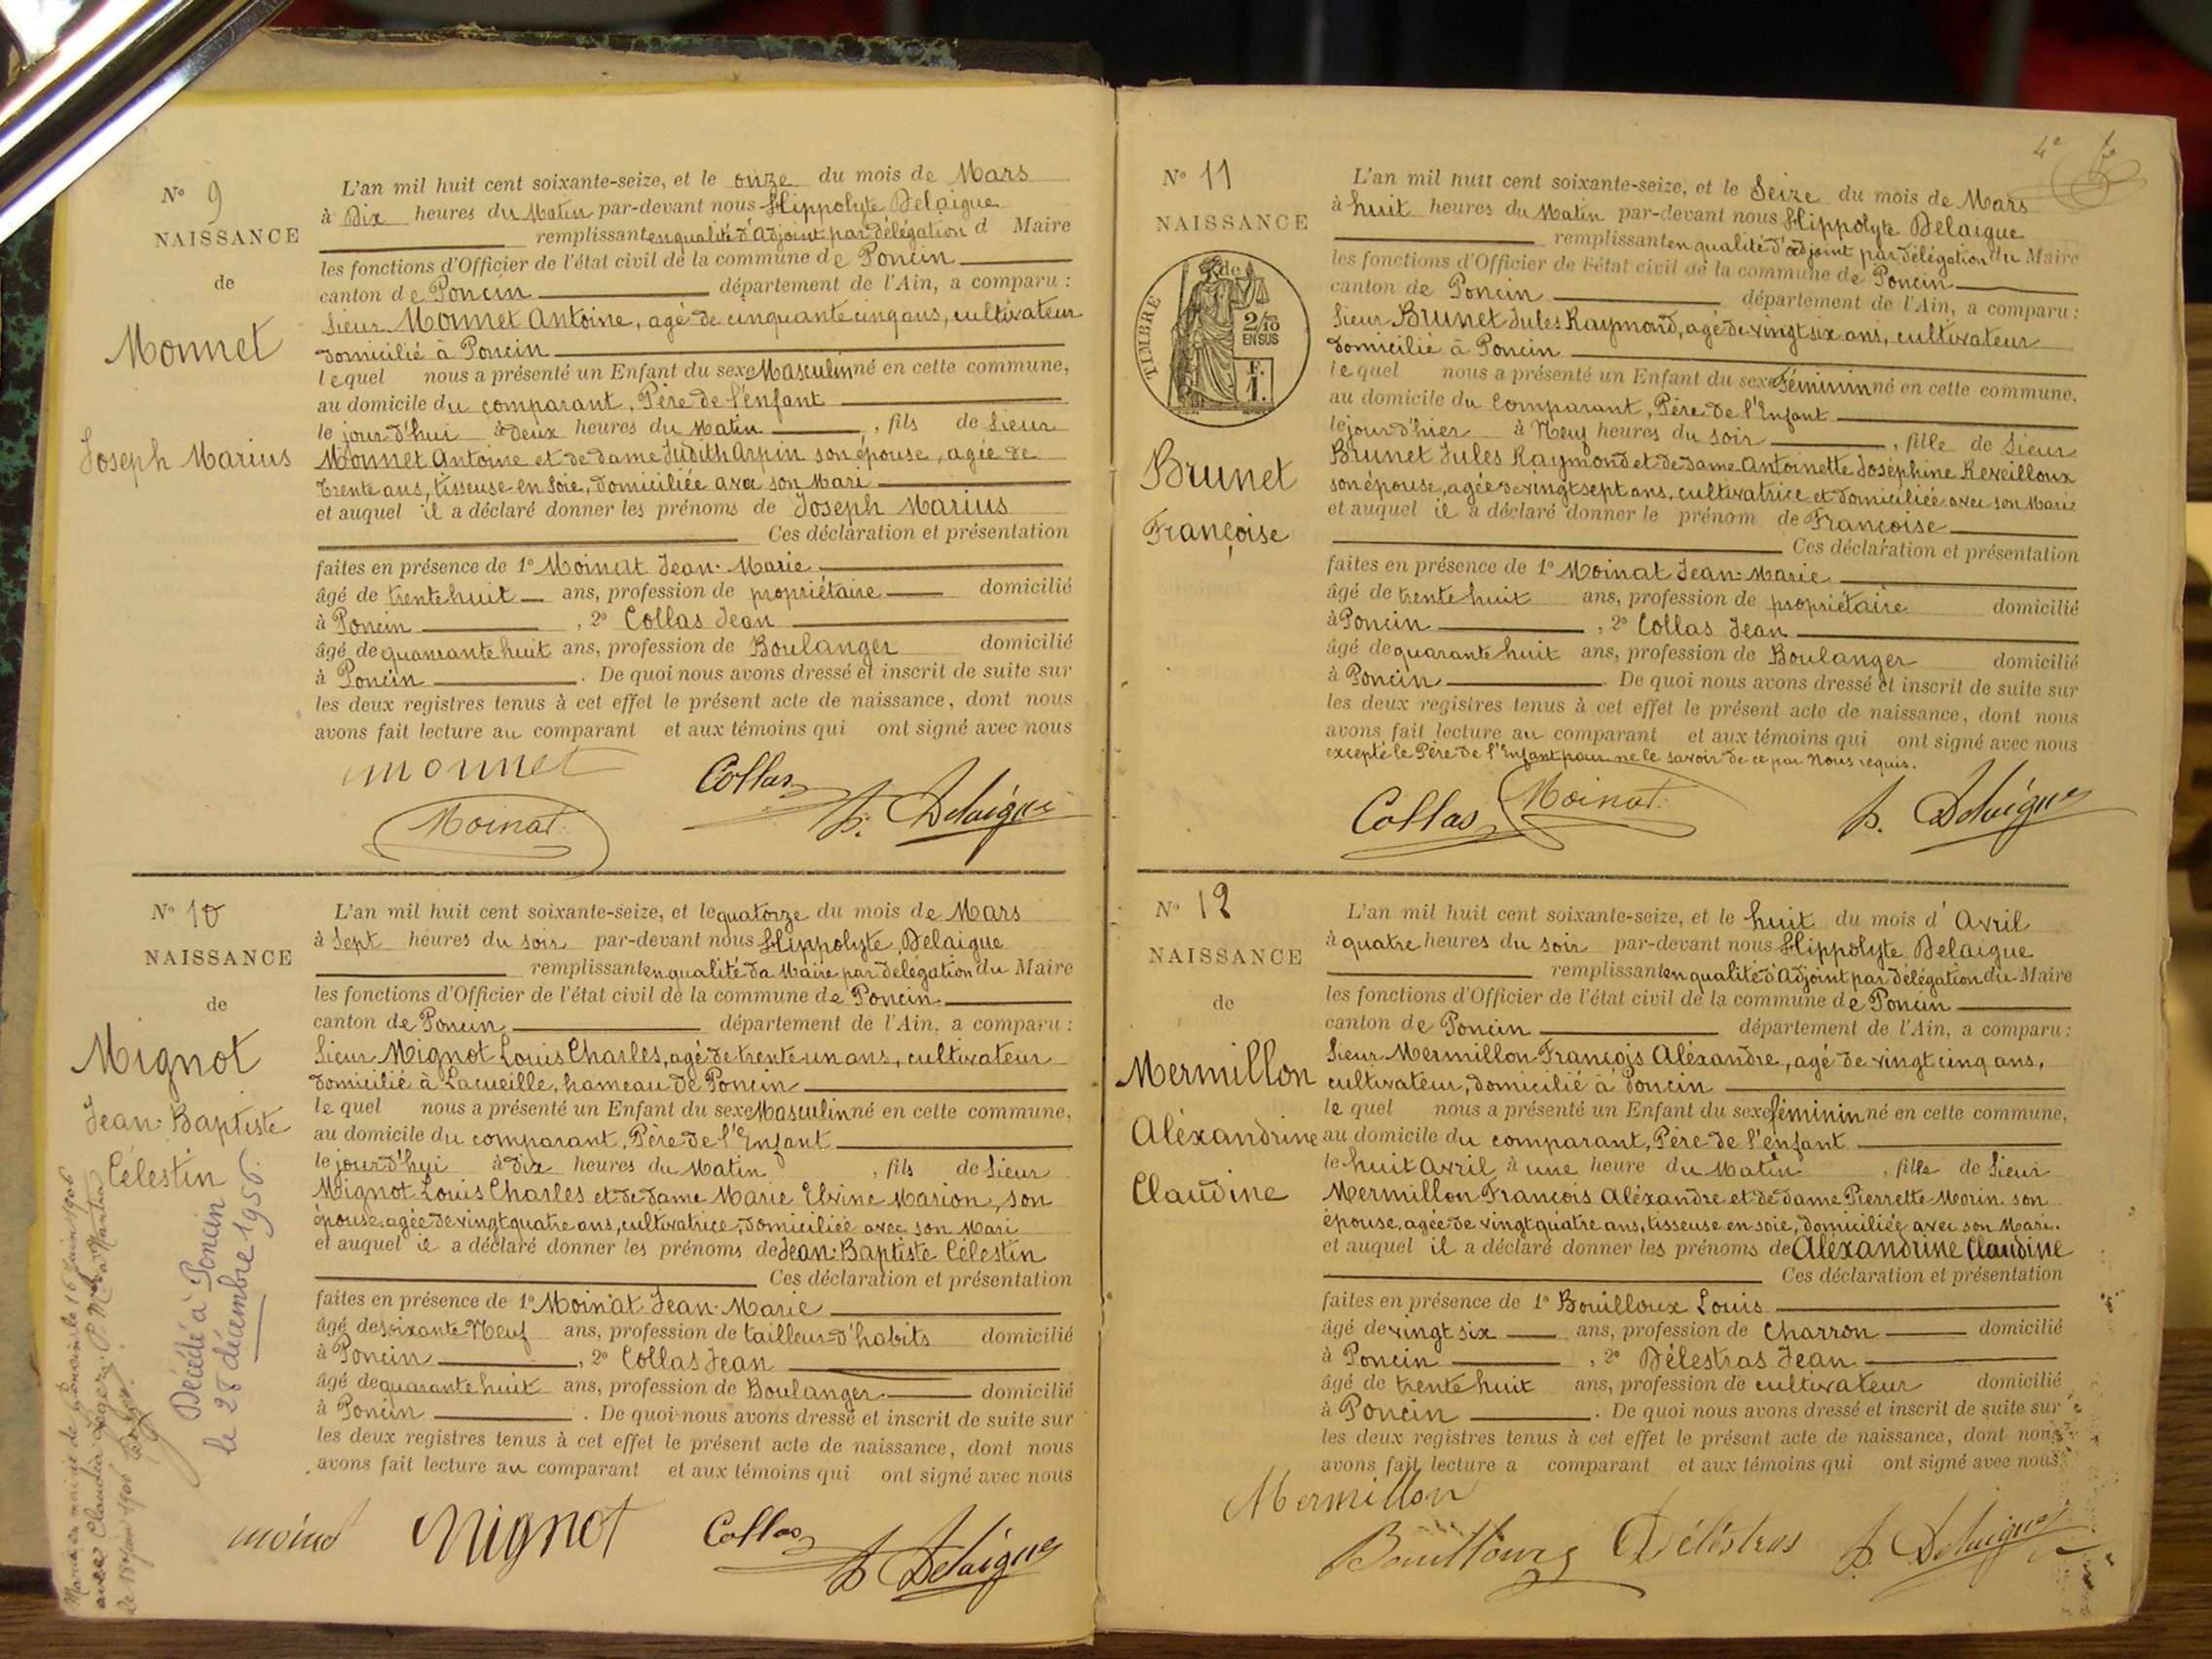 N° 9
NAISSANCE
de
Monnet
Joseph Marius
L'an mil huit cent soixante-seize, et le onze du mois de Mars
à Dix heures du Matin par-devant nous Hippolyte Delaigue
remplissant en qualité d'adjoint par délégation d Maire
les fonctions d'Officier de l'état civil de la commune de Poncin
canton de Poncin département de l'Ain, a comparu :
Sieur Monnet Antoine, agé de cinquante cinq ans, cultivateur
domicilié à Poncin
lequel nous a présenté un Enfant du sexe Masculin né en cette commune,
au domicile du comparant, Père de l'enfant
le jour d'hui à deux heures du Matin, fils de Sieur
Monnet Antoine et de dame Judith Arpin son épouse, agée de
trente ans, tisseuse en soie, domiciliée avec son Mari
et auquel il a déclaré donner les prénoms de Joseph Marius
Ces déclaration et présentation
faites en présence de 1° Moinat Jean-Marie
âgé de trente huit ans, profession de propriétaire domicilié
à Poncin, 2° Collas Jean
âgé de quarante huit ans, profession de Boulanger domicilié
à Poncin. De quoi nous avons dressé et inscrit de suite sur
les deux registres tenus à cet effet le présent acte de naissance, dont nous
avons fait lecture au comparant et aux témoins qui ont signé avec nous
monnet
Collas
Moinat
h. Delaigue
N° 10
NAISSANCE
de
Mignot
Jean-Baptiste
Célestin
Décédé à Poncin
le 28 décembre 1956.
L'an mil huit cent soixante-seize, et le quatorze du mois de Mars
à Sept heures du soir par-devant nous Hippolyte Delaigue
remplissant en qualité da Maire par délégation du Maire
les fonctions d'Officier de l'état civil de la commune de Poncin
canton de Poncin département de l'Ain, a comparu :
Sieur Mignot Louis Charles, agé de trente un ans, cultivateur
domicilié à Lacueille, hameau de Poncin
le quel nous a présenté un Enfant du sexe Masculin né en cette commune,
au domicile du comparant, Père de l'Enfant
le jour d'hui à dix heures du Matin, fils de Sieur
Mignot Louis Charles et de dame Marie Elvine Marion, son
épouse, agée de vingt quatre ans, cultivatrice, domiciliée avec son Mari
et auquel il a déclaré donner les prénoms de Jean-Baptiste Célestin
Ces déclaration et présentation
faites en présence de 1° Moinat Jean-Marie
âgé de soixante Neuf ans, profession de tailleur d'habits domicilié
à Poncin, 2° Collas Jean
âgé de quarante huit ans, profession de Boulanger domicilié
à Poncin. De quoi nous avons dressé et inscrit de suite sur
les deux registres tenus à cet effet le présent acte de naissance, dont nous
avons fait lecture au comparant et aux témoins qui ont signé avec nous
moinat Mignot Collas
h Delaigue
4e
N° 11
NAISSANCE
de
TIMBRE
2/10
EN SUS
F.
1.
Brunet
Françoise
L'an mil huit cent soixante-seize, et le Seize du mois de Mars
à huit heures du Matin par-devant nous Hippolyte Delaigue
remplissant en qualité d'adjoint par délégation du Maire
les fonctions d'Officier de l'état civil de la commune de Poncin
canton de Poncin département de l'Ain, a comparu :
Sieur Brunet Jules Raymond, agé de vingt six ans, cultivateur
domicilié à Poncin
le quel nous a présenté un Enfant du sexe féminin né en cette commune,
au domicile du comparant, Père de l'Enfant
le jour d'hier à Neuf heures du soir, fille de Sieur
Brunet Jules Raymond et de dame Antoinette Joséphine Reveilloux
son épouse, agée de vingt sept ans, cultivatrice et domiciliée avec son Mari
et auquel il a déclaré donner le prénom de Françoise
Ces déclaration et présentation
faites en présence de 1° Moinat Jean-Marie
âgé de trente huit ans, profession de propriétaire domicilié
à Poncin, 2° Collas Jean
âgé de quarante huit ans, profession de Boulanger domicilié
à Poncin. De quoi nous avons dressé et inscrit de suite sur
les deux registres tenus à cet effet le présent acte de naissance, dont nous
avons fait lecture au comparant et aux témoins qui ont signé avec nous
excepté le Père de l'Enfant pour ne le savoir de ce par Nous requis.
Collas Moinat h. Delaigue
N° 12
NAISSANCE
de
Mermillon
Aléxandrine
Claudine
L'an mil huit cent soixante-seize, et le huit du mois d'Avril
à quatre heures du soir par-devant nous Hippolyte Delaigue
remplissant en qualité d'Adjoint par délégation du Maire
les fonctions d'Officier de l'état civil de la commune de Poncin
canton de Poncin département de l'Ain, a comparu :
Sieur Mermillon François Aléxandre, agé de vingt cinq ans,
cultivateur, domicilié à Poncin
le quel nous a présenté un Enfant du sexe féminin né en cette commune,
au domicile du comparant, Père de l'enfant
le huit Avril à une heure du Matin, fille de Sieur
Mermillon François Aléxandre et de dame Pierrette Morin son
épouse, agée de vingt quatre ans, tisseuse en soie, domiciliée avec son Mari.
et auquel il a déclaré donner les prénoms de Aléxandrine Claudine
Ces déclaration et présentation
faites en présence de 1° Bouilloux Louis
âgé de vingt six ans, profession de Charron domicilié
à Poncin, 2° Délestras Jean
âgé de trente huit ans, profession de cultivateur domicilié
à Poncin. De quoi nous avons dressé et inscrit de suite sur
les deux registres tenus à cet effet le présent acte de naissance, dont nous
avons fait lecture a comparant et aux témoins qui ont signé avec nous
Mermillon
Bouilloux Délestras h. Delaigue